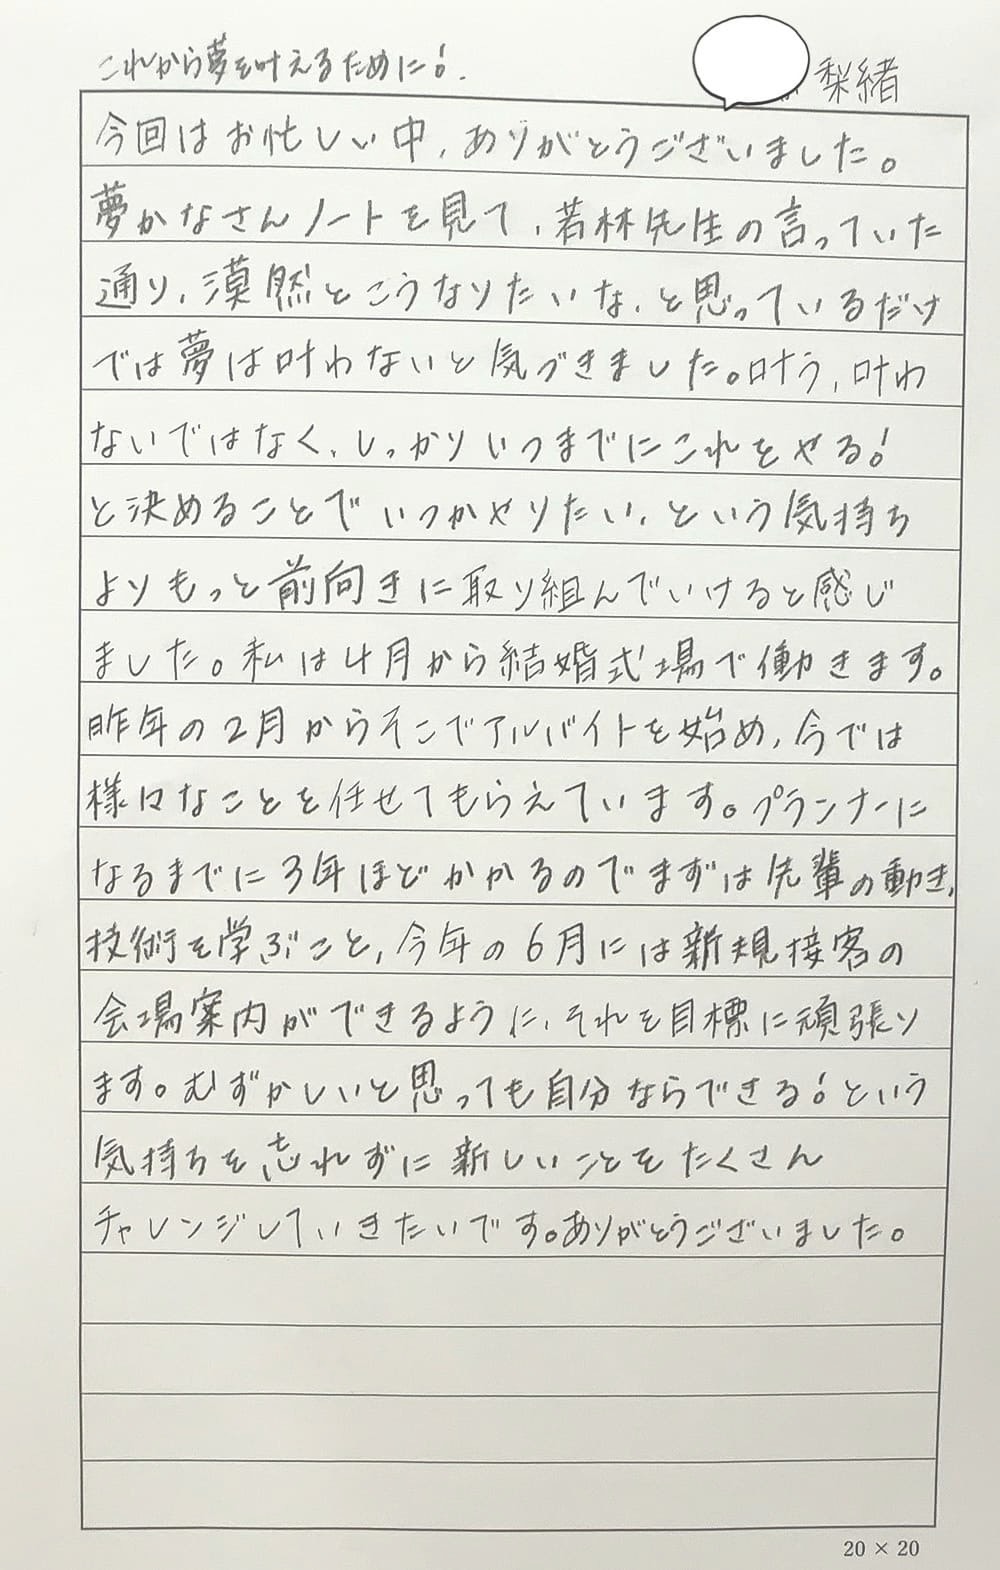 これから夢を叶えるために!.
梨緒
今回はお忙しい中、ありがとうございました。
夢かなさんノートを見て、若林先生の言っていた
通り、漠然とこうなりたいな、と思っているだけ
では夢は叶わないと気づきました。叶う、叶わ
ないではなく、しっかりいつまでにこれをやる!
と決めることでいつかやりたい、という気持ち
よりもっと前向きに取り組んでいけると感じ
ました。私は4月から結婚式場で働きます。
昨年の2月からそこでアルバイトを始め、今では
様々なことを任せてもらえています。プランナーに
なるまでに3年ほどかかるのでまずは先輩の動き、
技術を学ぶこと、今年の6月には新規接客の
会場案内ができるように、それを目標に頑張り
ます。むずかしいと思っても自分ならできる!という
気持ちを忘れずに新しいことをたくさん
チャレンジしていきたいです。ありがとうございました。
20 × 20